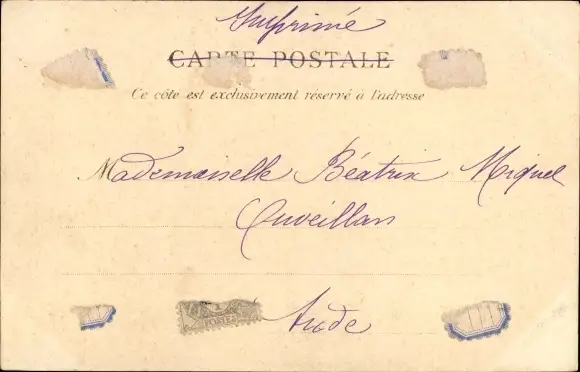 Imprimé
CARTE POSTALE
Ce côté est exclusivement réservé à l'adresse
Mademoiselle Béatrix Miquel
Ouveillan
Aude
POSTES